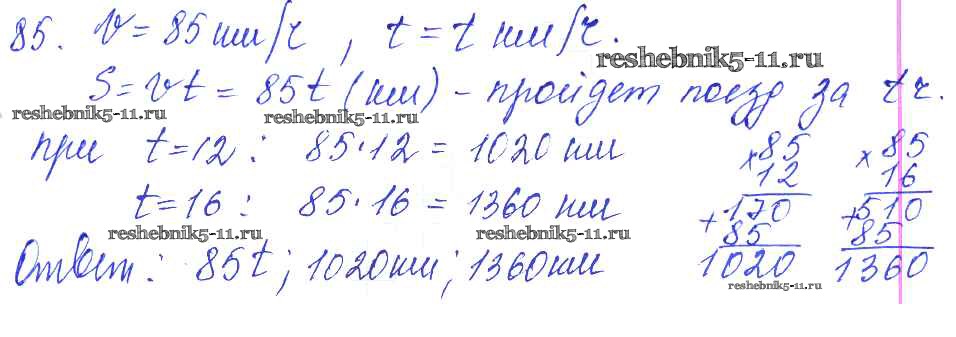 85. v = 85 км/ч, t = t км/ч.
reshebnik5-11.ru
S = vt = 85t (км) - пройдет поезд за t ч.
reshebnik5-11.ru reshebnik5-11.ru
при t = 12 : 85·12 = 1020 км
t = 16 : 85·16 = 1360 км
reshebnik5-11.ru reshebnik5-11.ru
Ответ: 85t; 1020км; 1360км
× 85 × 85
12 16
+ 170 + 510
85 85
1020 1360
reshebnik5-11.ru